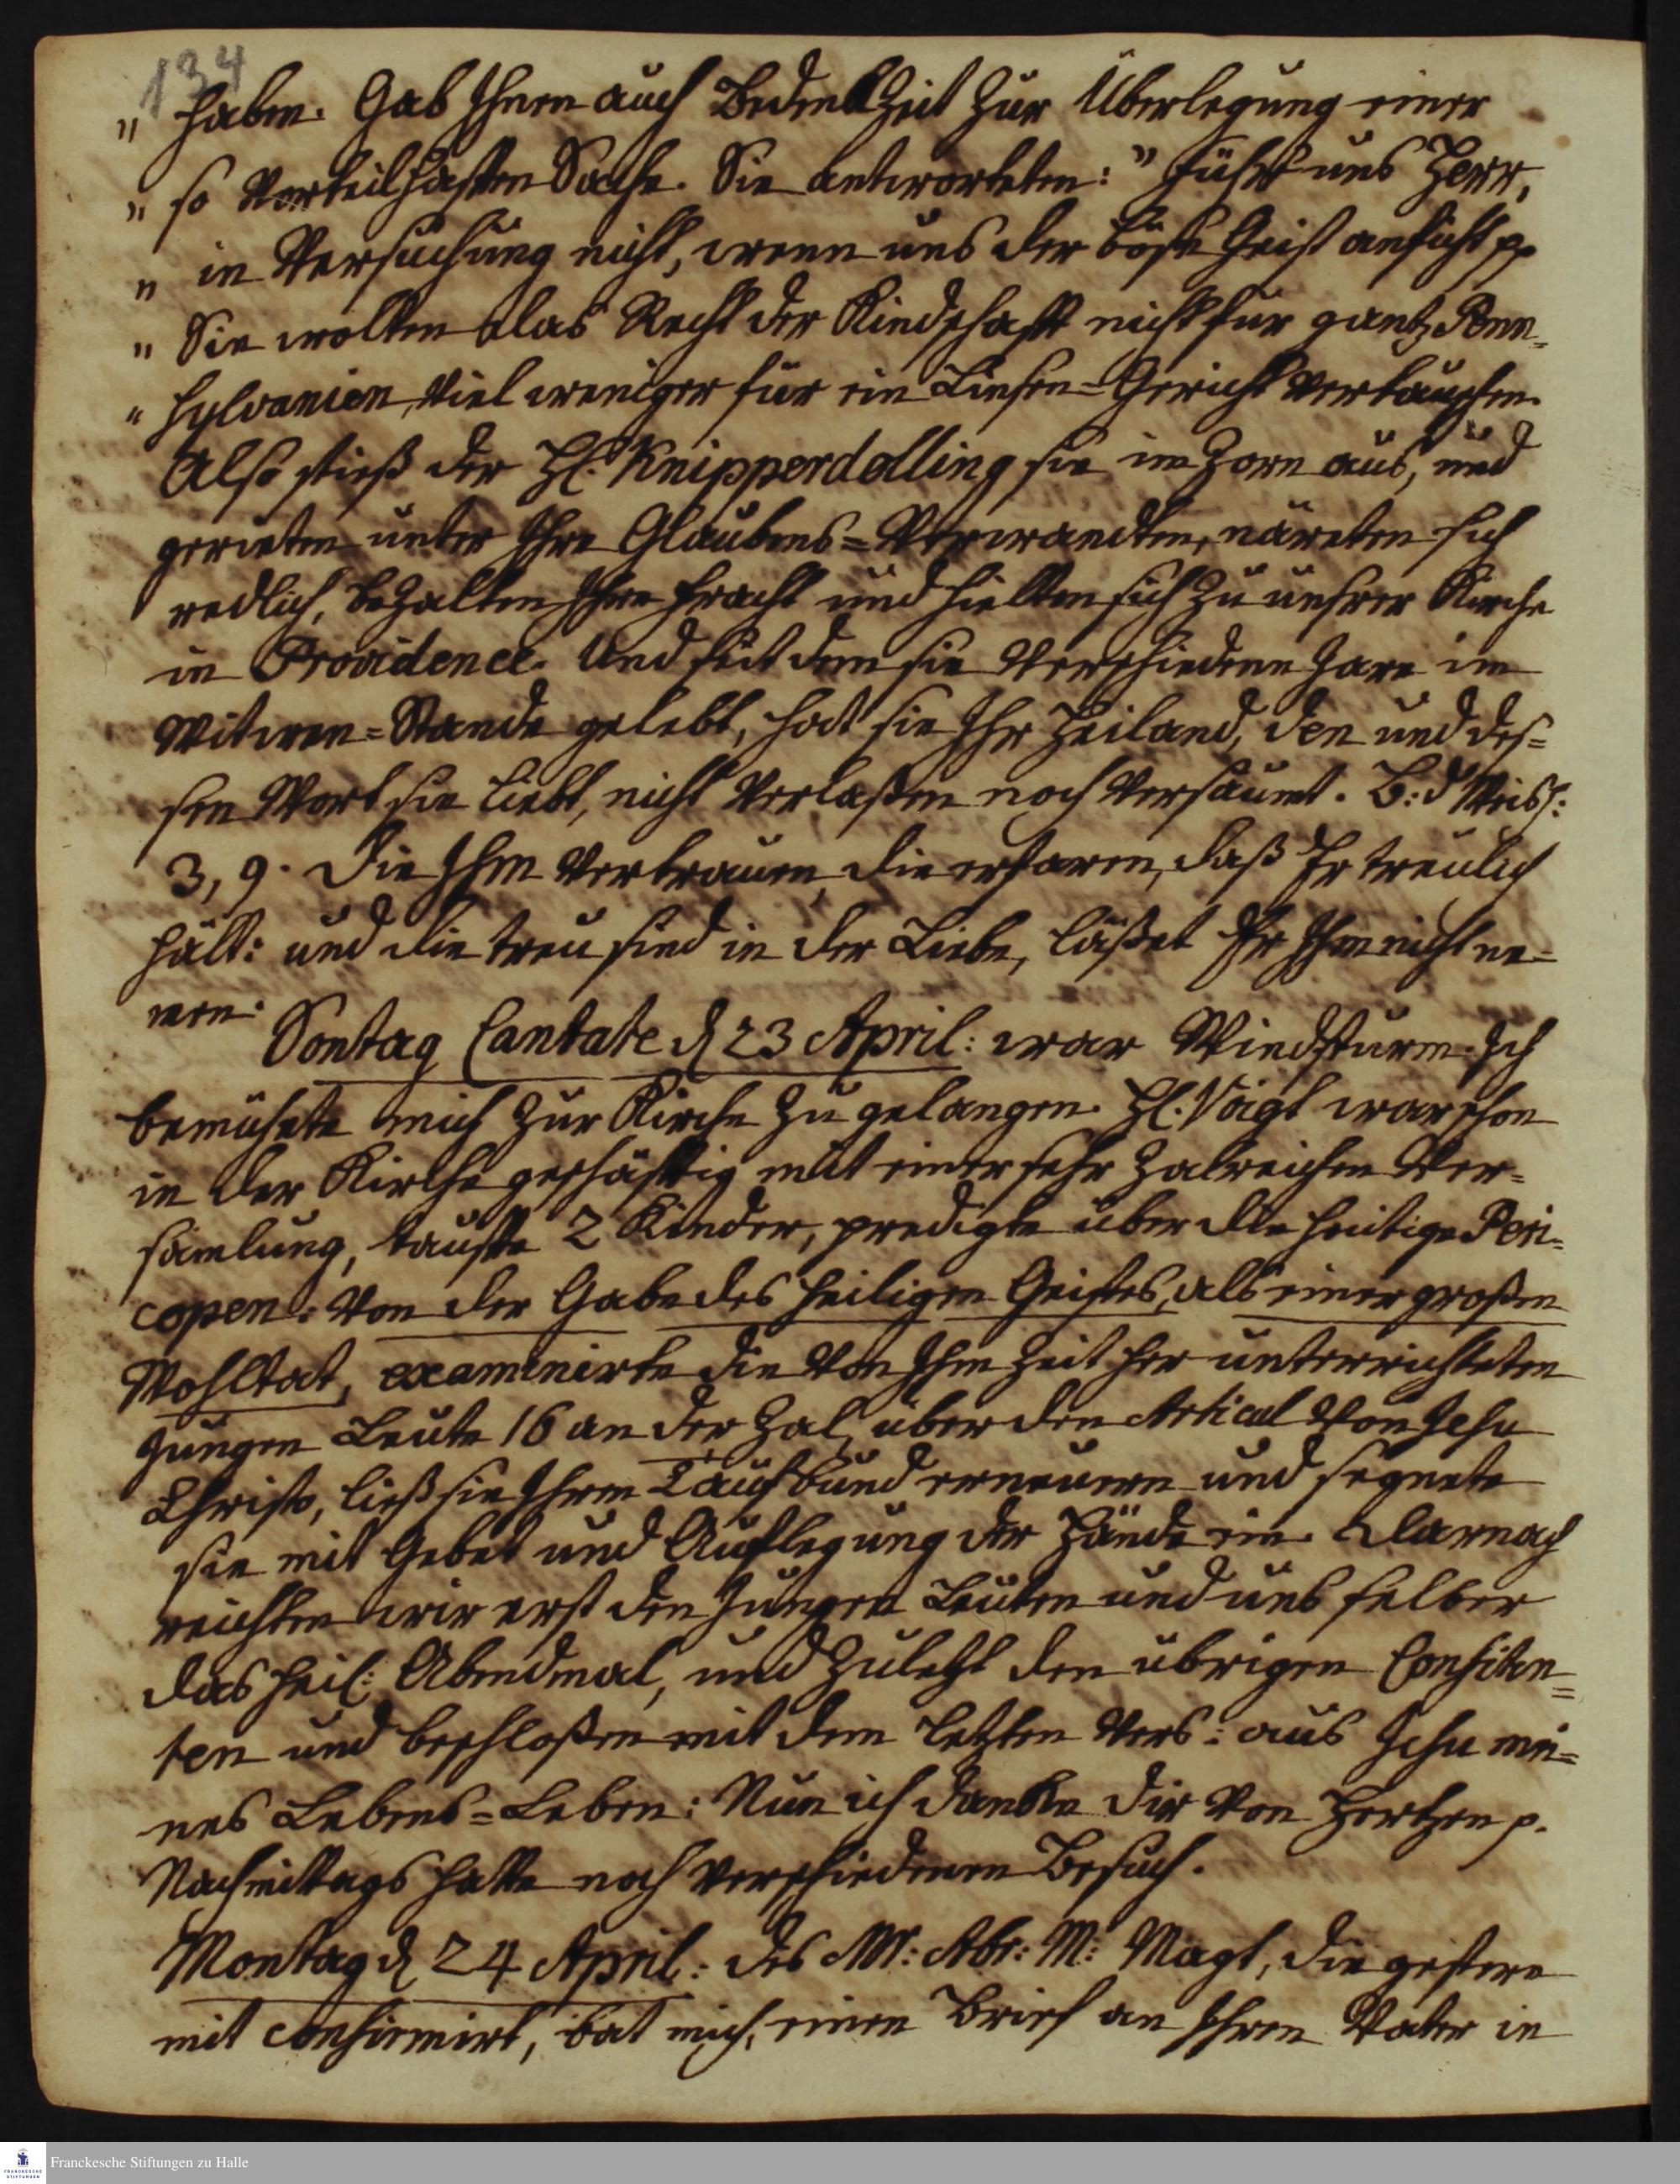 134
" haben. Gab Ihnen auch Bedenckzeit zur Überlegung einer
" so vorteilhaften Sache. Sie antworteten: " führ uns Herr,
" in Versuchung nicht, wenn uns der böse Geist anficht pp
" Sie wolten das Recht der Kindschafft nicht für gantz Penn=
" sylvanien, viel weniger für ein Linsen=Gericht vertauschen.
Also stieß der H. Knipperdolling sie im Zorn aus, und
gerieten unter Ihre Glaubens=Verwandten, näreten sich
redlich, bezalten Ihre Fracht und hielten sich zu unsrer Kirche
in Providence. Und seit dem sie verschiedene Jare im
Witwen=Stande gelebt, hat sie Ihr Heiland, den und des=
sen Wort sie liebt, nicht verlaßen noch versäumt. B: d Weish:
3, 9. Die Ihm vertrauen, die erfaren, daß Er treulich
hält: und die treu sind in der Liebe, läßet Er Ihm nicht ne=
men.
Sontag Cantate d 23 April: war Windsturm. Ich
bemühete mich zur Kirche zu gelangen. H. Voigt war schon
in der Kirche geschäftig mit einer sehr zalreichen Ver=
samlung, taufte 2 Kinder, predigte über die heutige Peri=
copen: von der Gabe des heiligen Geistes, als einer großen
Wohltat, examinirte die von Ihm zeither unterrichteten
jungen Leute 16 an der Zal, über den Articul von Jesu
Christo, ließ sie Ihren Taufbund erneuern und segnete
sie mit Gebet und Auflegung der Hände ein. Darnach
reichten wir erst den jungen Leuten und uns selber
das heil: Abendmal, und zuletzt den übrigen Confiten=
ten und beschloßen mit dem letzten Vers: aus Jesu mei=
nes Lebens=Leben: Nun ich dancke dir von Hertzen p.
Nachmittags hatte noch verschiedenen Besuch.
Montag d 24 April: des Mr: Abr: M: Magt, die gestern
mit confirmirt, bat mich, einen Brief an Ihren Vater in
Franckesche Stiftungen zu Halle
FRANCKESCHE STIFTUNGEN